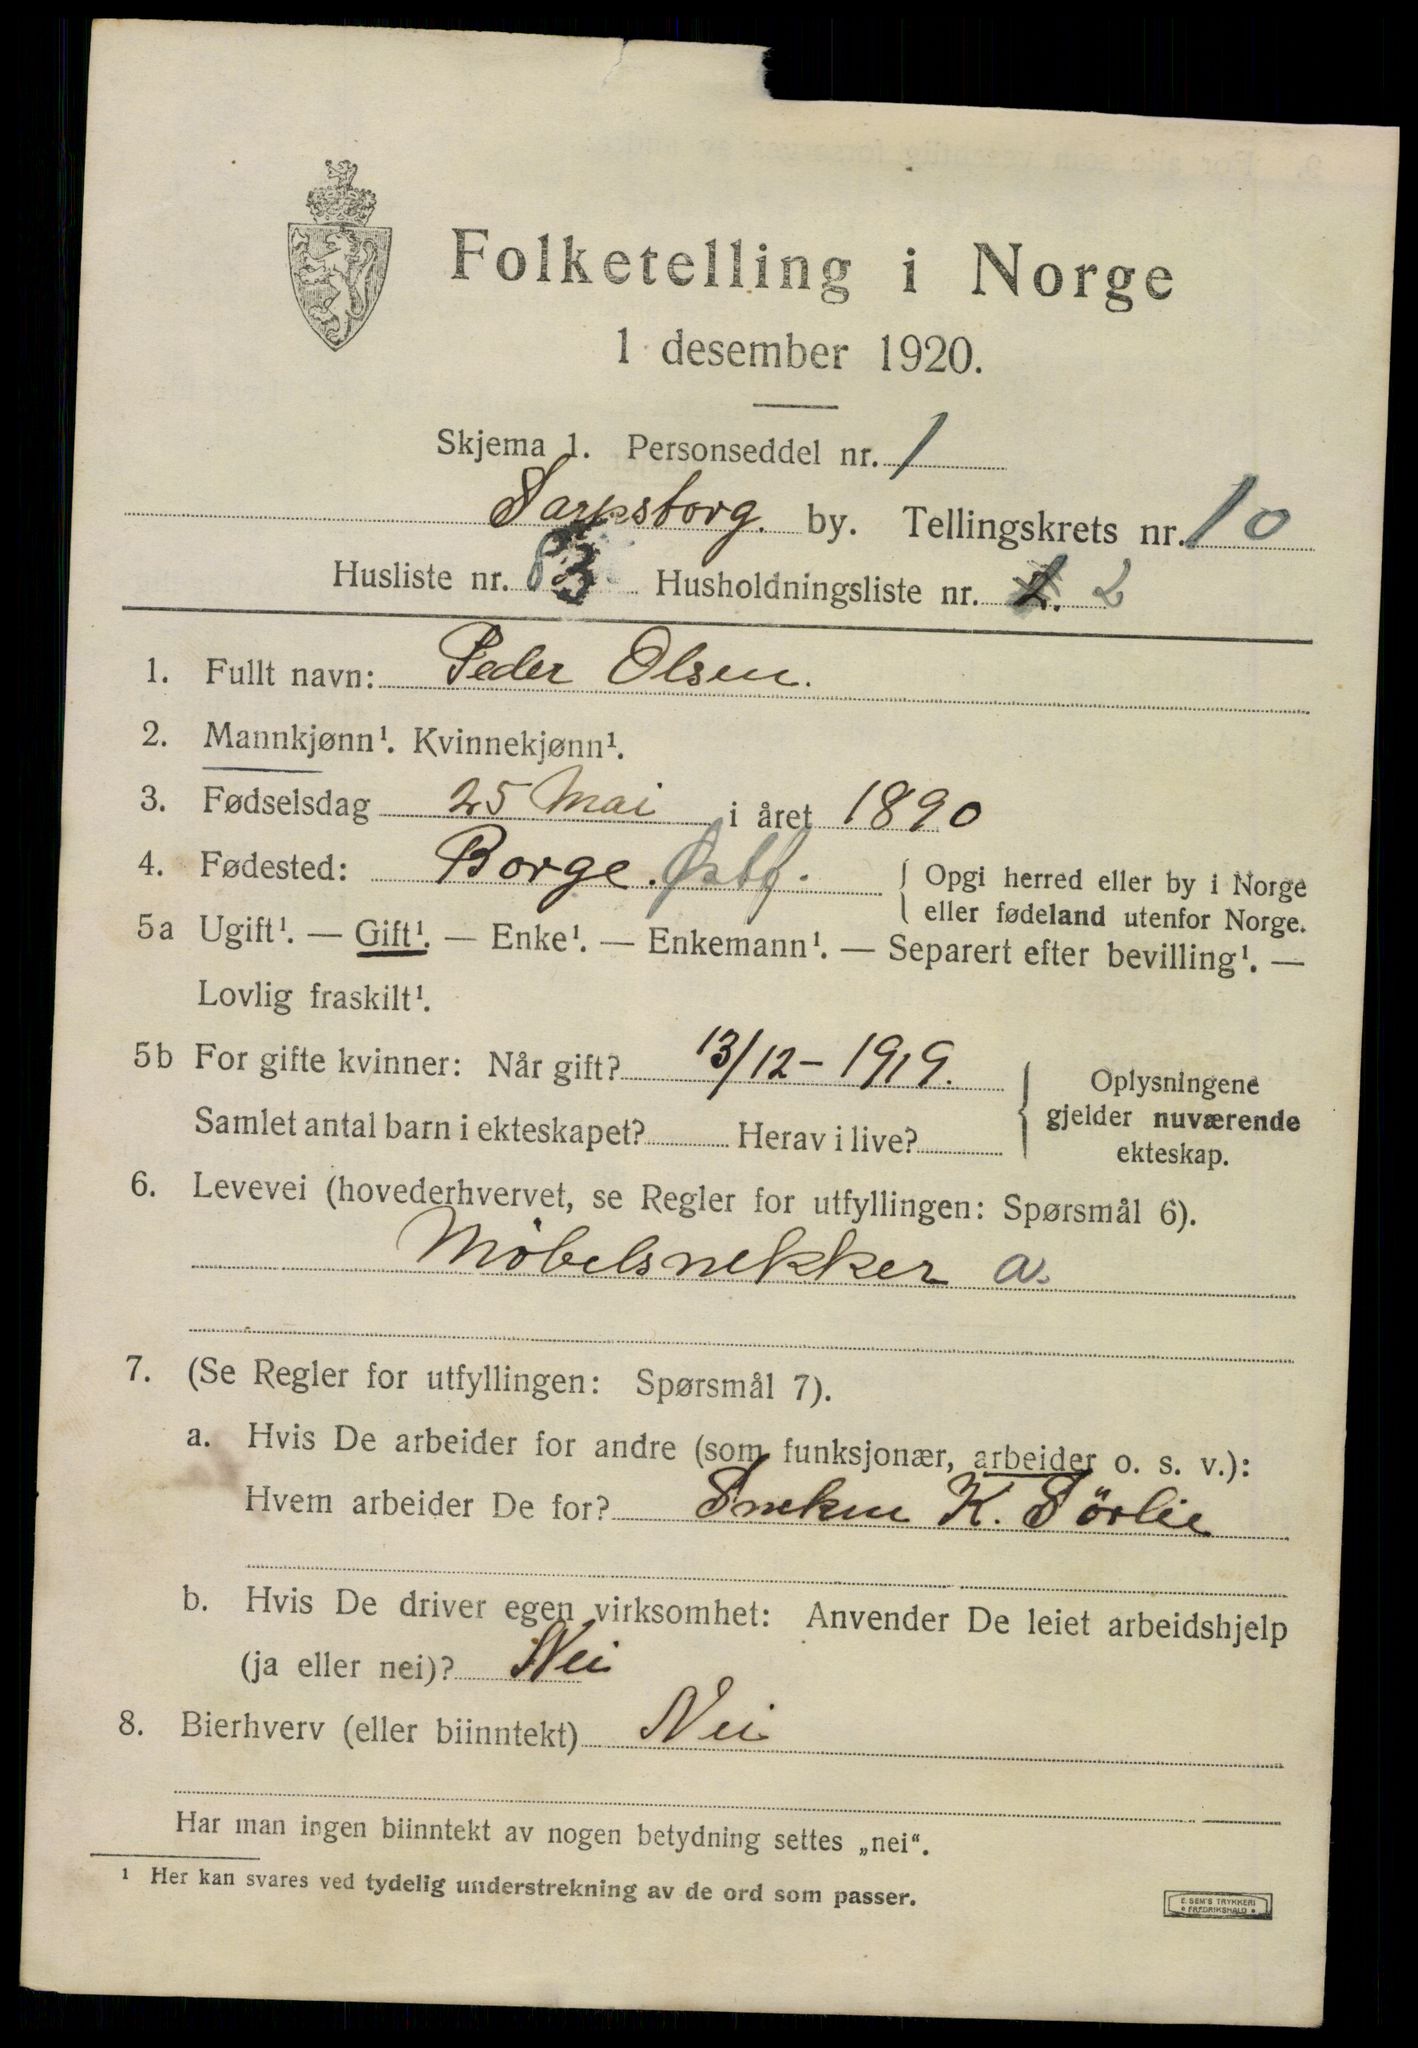 Folketelling i Norge
1 desember 1920.
Skjema 1. Personseddel nr. 1
Sarpsborg. by. Tellingskrets nr. 10
Husliste nr. 83 Husholdningsliste nr. 2
1. Fullt navn: Peder Olsen.
2. Mannkjønn¹. Kvinnekjønn¹.
3. Fødselsdag 25 Mai i året 1890
4. Fødested: Borge. Østf. { Opgi herred eller by i Norge
eller fødeland utenfor Norge.
5a Ugift¹. — Gift¹. — Enke¹. — Enkemann¹. — Separert efter bevilling¹. —
Lovlig fraskilt¹.
5b For gifte kvinner: Når gift? 13/12 – 1919. { Oplysningene
Samlet antal barn i ekteskapet? Herav i live? gjelder nuværende
ekteskap.
6. Levevei (hovederhvervet, se Regler for utfyllingen: Spørsmål 6).
Møbelsnekker a.
7. (Se Regler for utfyllingen: Spørsmål 7).
a. Hvis De arbeider for andre (som funksjonær, arbeider o. s. v.):
Hvem arbeider De for? K. Sörlie
b. Hvis De driver egen virksomhet: Anvender De leiet arbeidshjelp
(ja eller nei)? Nei
8. Bierhverv (eller biinntekt) Nei
Har man ingen biinntekt av nogen betydning settes „nei“.
¹ Her kan svares ved tydelig understrekning av de ord som passer.
E. SEM'S TRYKKERI
• FREDRIKSHALD •